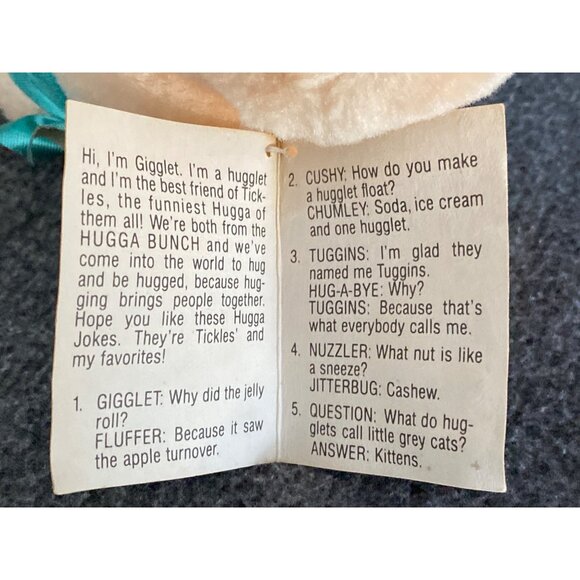 Hi, I'm Gigglet. I'm a hugglet
and I'm the best friend of Tick-
les, the funniest Hugga of
them all! We're both from the
HUGGA BUNCH and we've
come into the world to hug
and be hugged, because hug-
ging brings people together.
Hope you like these Hugga
Jokes. They're Tickles' and
my favorites!
1. GIGGLET: Why did the jelly
roll?
FLUFFER: Because it saw
the apple turnover.
2. CUSHY: How do you make
a hugglet float?
CHUMLEY: Soda, ice cream
and one hugglet.
3. TUGGINS: I'm glad they
named me Tuggins.
HUG-A-BYE: Why?
TUGGINS: Because that's
what everybody calls me.
4. NUZZLER: What nut is like
a sneeze?
JITTERBUG: Cashew.
5. QUESTION: What do hug-
glets call little grey cats?
ANSWER: Kittens.